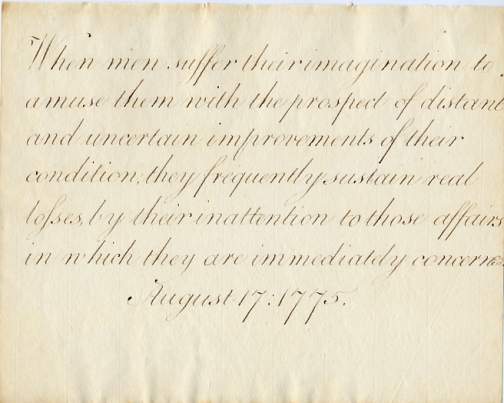 When men suffer their imagination to
amuse them with the prospect of distant
and uncertain improvements of their
condition, they frequently sustain real
losses, by their inattention to those affairs
in which they are immediately concerned.
August 17: 1775.